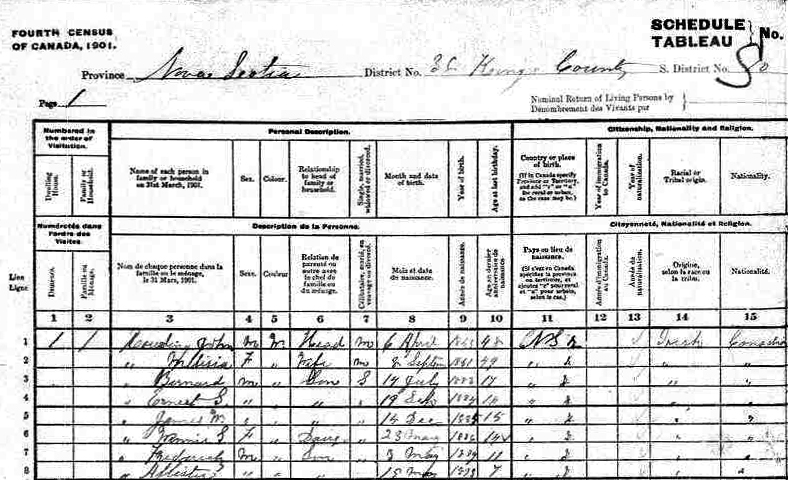 FOURTH CENSUS
OF CANADA, 1901.
SCHEDULE
TABLEAU No.
Province Nova Scotia District No. Kings County S. District No.
Page 1
Nominal Return of Living Persons by
Dénombrement des Vivants par
Numbered in the order of Visitation.
Personal Description.
Citizenship, Nationality and Religion.
Dwelling House.
Family or Household.
Name of each person in family or household on 31st March, 1901.
Sex.
Colour.
Relationship to head of family or household.
Single, married, widowed or divorced.
Month and date of birth.
Year of birth.
Age at last birthday.
Country or place of birth.
(If in Canada specify Province or Territory, and add "r" or "u" for rural or urban, as the case may be.)
Year of immigration to Canada.
Year of naturalization.
Racial or Tribal origin.
Nationality.
Numérotés dans l'ordre des Visites.
Description de la Personne.
Citoyenneté, Nationalité et Religion.
Line
Ligne
Demeure.
Famille ou Ménage.
Nom de chaque personne dans la famille ou le ménage, le 31 Mars, 1901.
Sexe.
Couleur
Relation de parenté ou autre avec le chef de famille ou du ménage.
Célibataire, marié, en veuvage ou divorcé.
Mois et date de naissance.
Année de naissance.
Age au dernier anniversaire de naissance
Pays ou lieu de naissance.
(Si c'est en Canada spécifiez la province ou territoire, et ajoutez "r" pour rural et "u" pour urbain, selon le cas.)
Année d'immigration au Canada.
Année de naturalisation.
Origine, selon la race ou la tribu.
Nationalité.
1 2 3 4 5 6 7 8 9 10 11 12 13 14 15
1 1 1 John M Head M 6 April 48 N S r Irish Canadian
2 " F " Wife M Septem 49 " r " "
3 " Bernard M " Son S 14 July 17 " r " "
4 " Ernest S " " " " 19 " r " "
5 " James M " " " " 15 Dec 1885 15 " r " "
6 " S F " Daug " 23 " r " "
7 " Frederick M " Son " 3 May 11 " r " "
8 " " " " " 15 May 7 " r " "